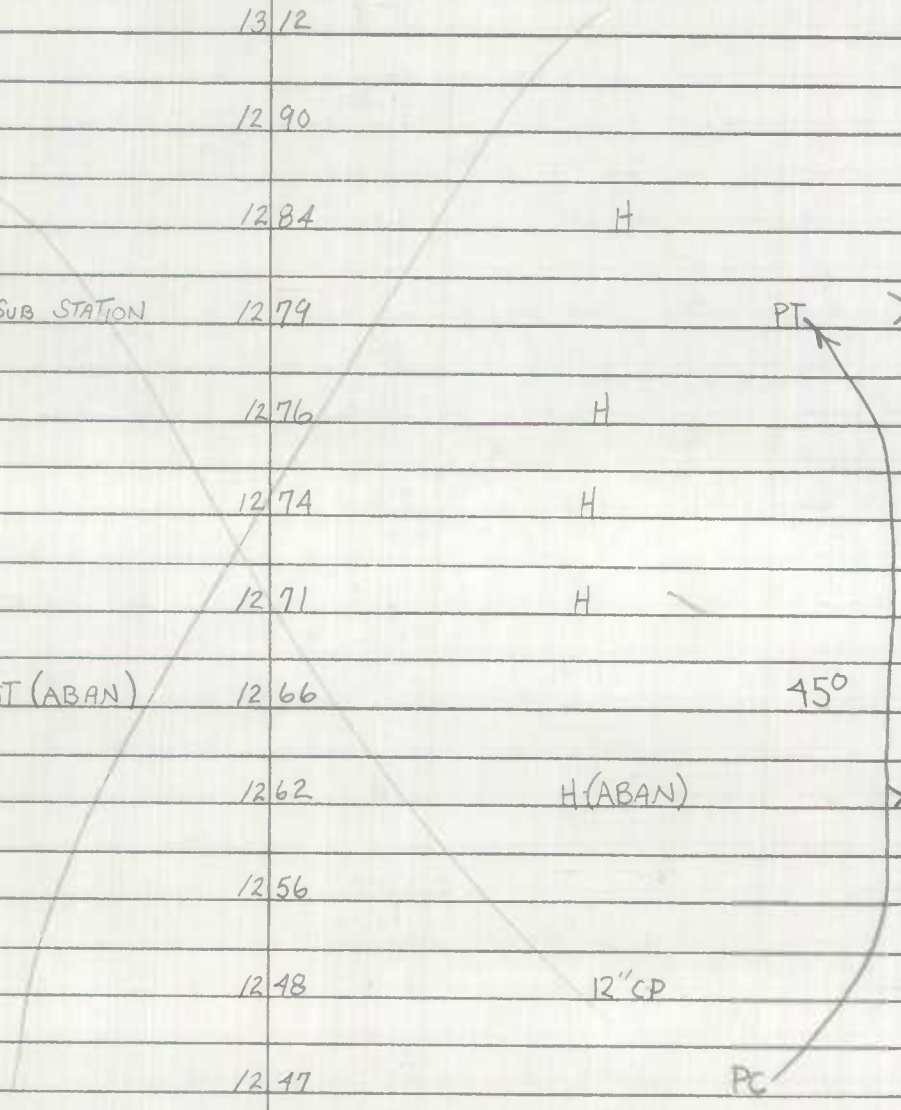 1312
1290
1284 H
SUB STATION 1279 PT
1276 H
1274 H
1271 H
T (ABAN) 1266 45°
1262 H (ABAN)
1256
1248 12" CP
1247 PC